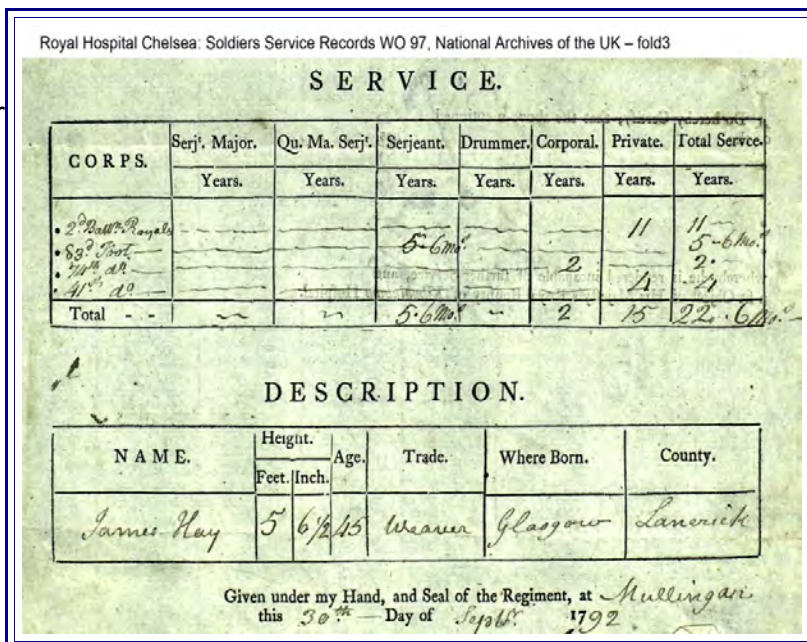 Royal Hospital Chelsea: Soldiers Service Records WO 97, National Archives of the UK – fold3
SERVICE.
CORPS. Serjt. Major. Qu. Ma. Serjt. Serjeant. Drummer. Corporal. Private. Total Servce.
Years. Years. Years. Years. Years. Years. Years.
2d Battn Royals 11 11
83d Foot 5-6 Mos 5-6 Mos
74th do 2 2
41st do 4 4
Total - - 5.6 Mos 2 15 22.6 Mos
DESCRIPTION.
NAME. Height. Age. Trade. Where Born. County.
Feet. Inch.
James Hay 5 6 1/2 45 Weaver Glasgow Lanerick
Given under my Hand, and Seal of the Regiment, at Mullingar
this 30th Day of Septr. 1792